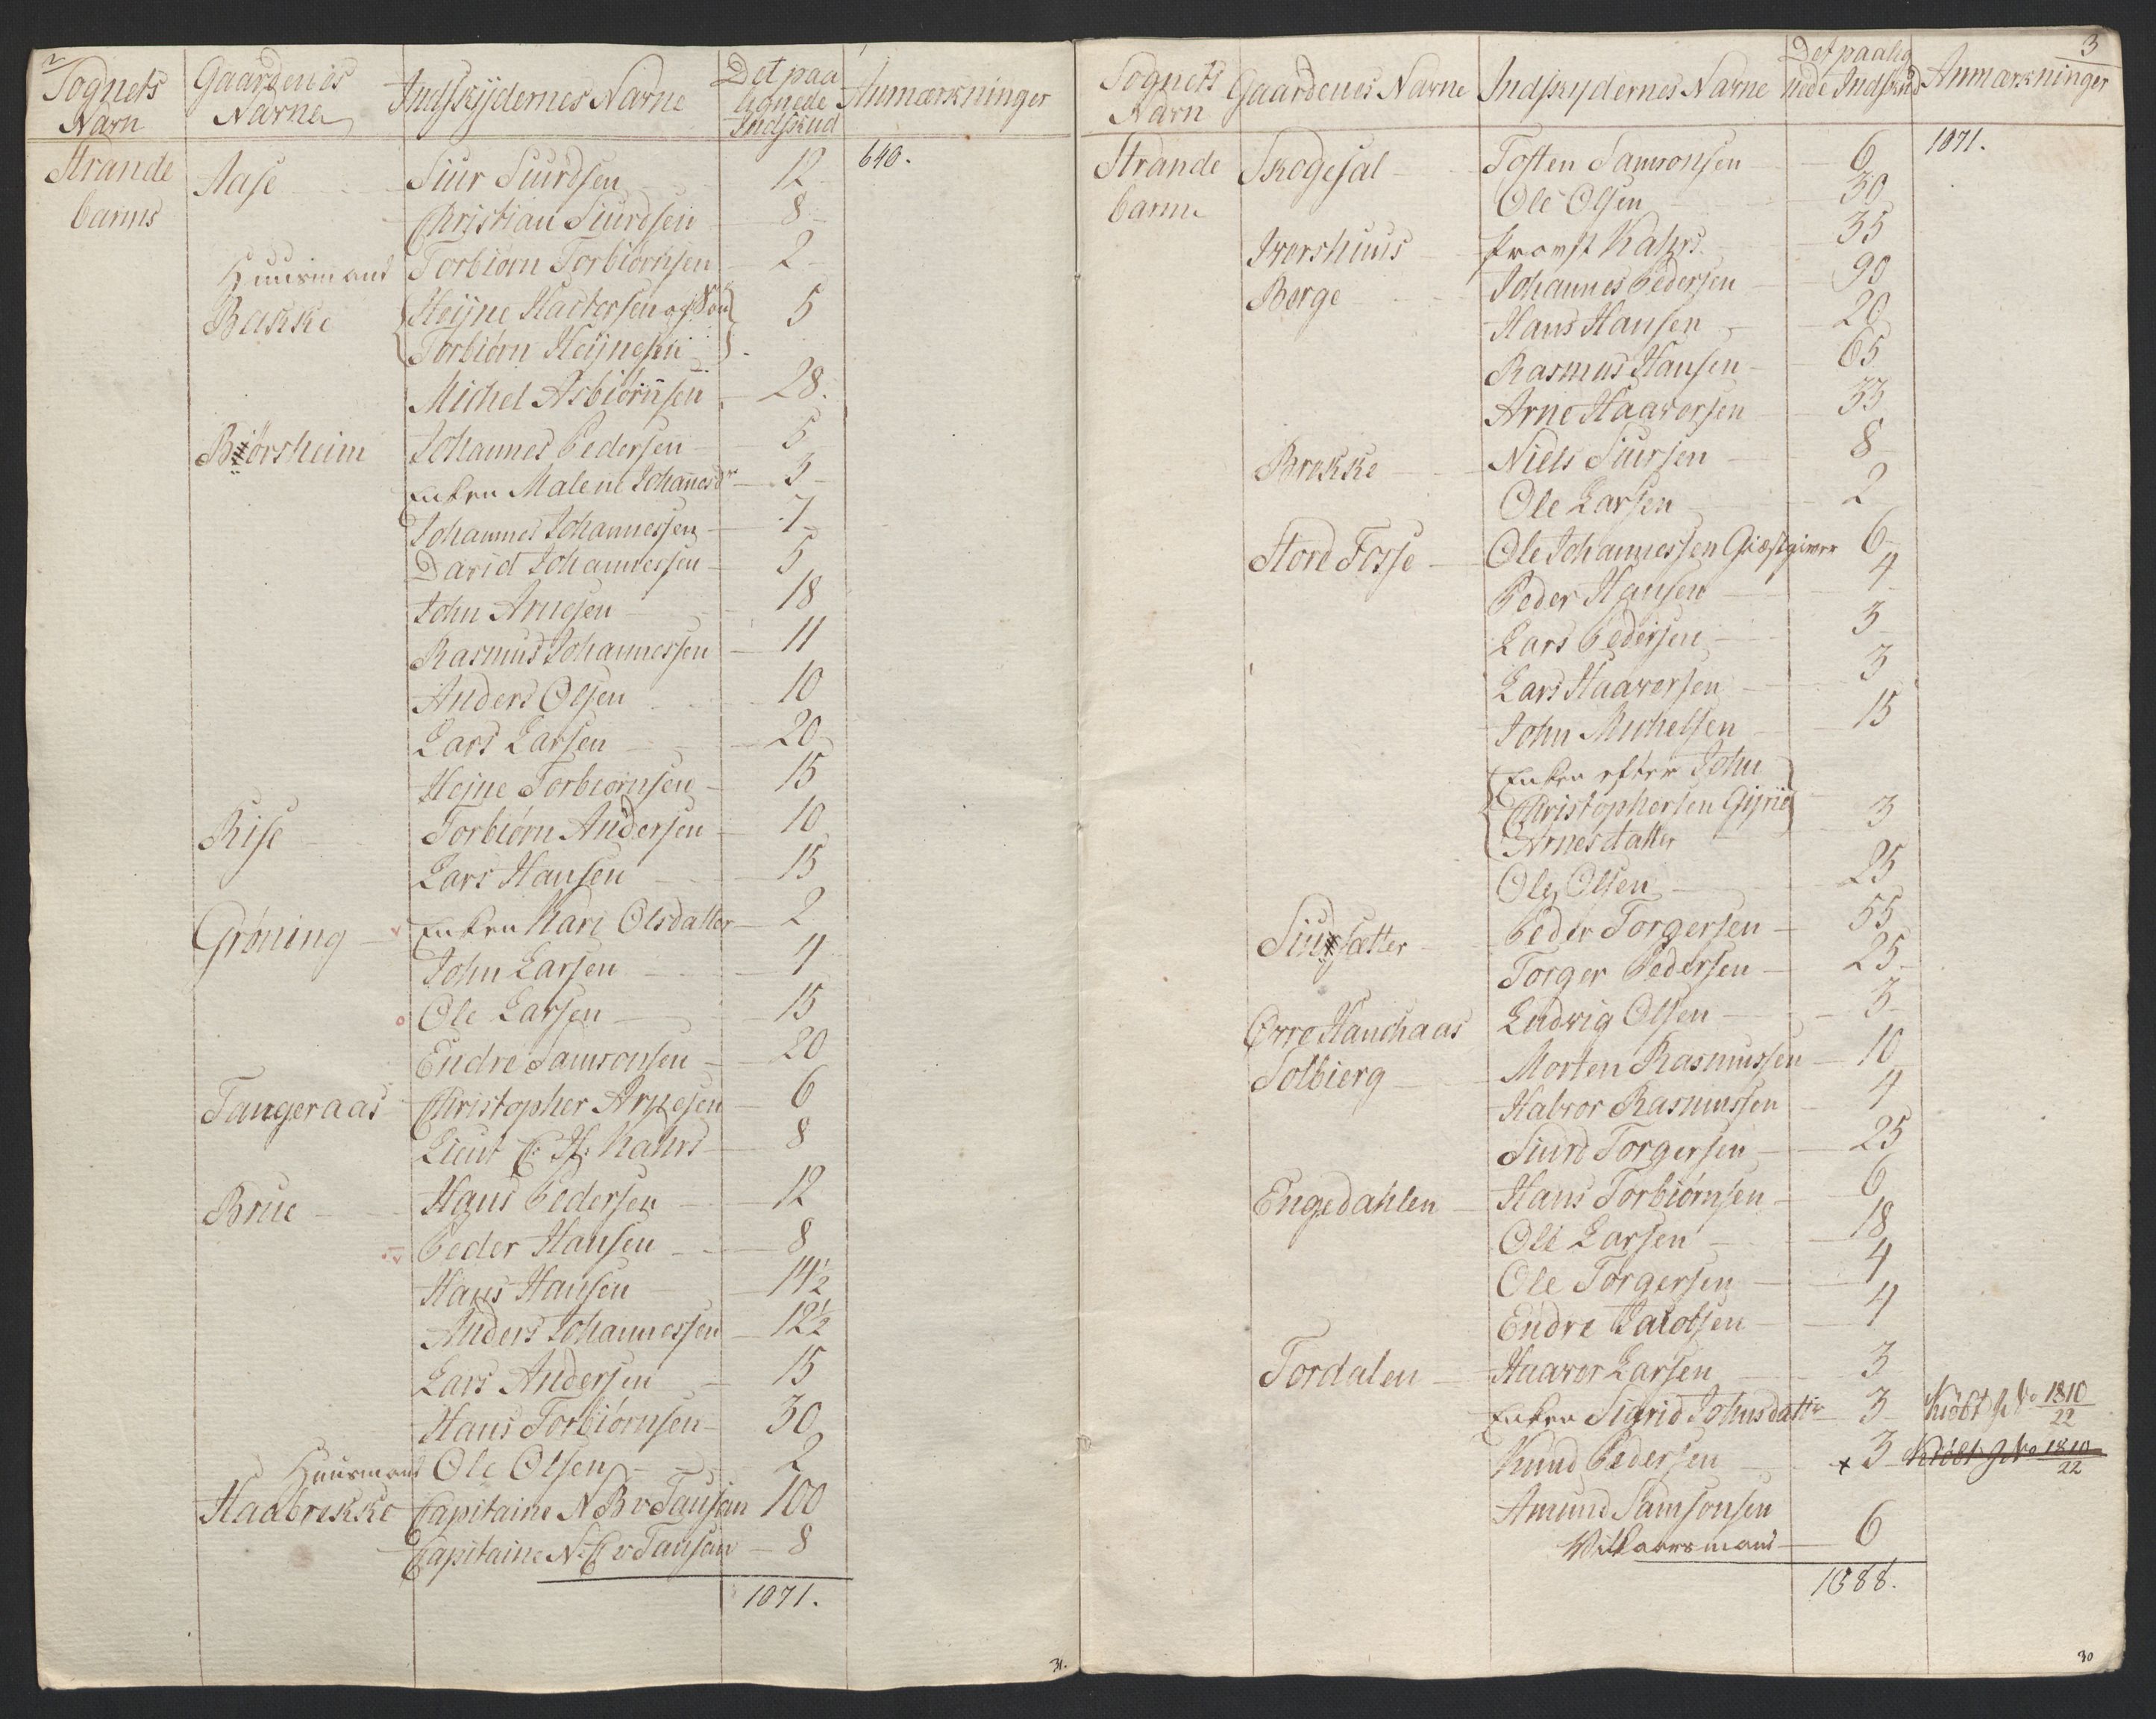 2
Sognets Navn | Gaardenes Navne | Indskydernes Navne | Det paa lignede Indskud | Anmærkninger
Strande barms | Aase | Siur Siurdsen | 12 | 640.
Christian Siurdsen | 8
Huusmand | Torbiørn Torbiørnsen | 2
Bakke | Heijne Hactorsen og Søn | 5
Torbiørn Heijnesen
Michel Asbiørnsen | 28.
Biørsheim | Johannes Pedersen | 5
Enken Malene Johanesdr | 3
Johannes Johannessen | 7
David Johannessen | 5
John Arnesen | 18
Rasmus Johannessen | 11
Anders Olsen | 10
Lars Larsen | 20
Hejne Torbiørnsen | 15
Rise | Torbiørn Andersen | 10
Lars Hansen | 15
Grøning | Enken Kari Olsdatter | 2
John Larsen | 4
Ole Larsen | 15
Endre Samsonsen | 20
Tangeraas | Christopher Arnesen | 6
Lieut C: H: Kahrs | 8
Brue | Hans Pedersen | 12
Peder Hansen | 8
Hans Hansen | 14½
Anders Johannessen | 12½
Lars Andersen | 15
Hans Torbiørnsen | 30
Huusmand | Ole Olsen | 2
Haabrekke | Capitaine N B v Tausan | 100
Capitaine N. C v Tausan | 8
1071.
31.
3
Sognets Navn | Gaardenes Navne | Indskydernes Navne | Det paalig nede Indskud | Anmærkninger
Strande barm | Skogesal | Tosten Samsonsen | 6 | 1071.
Ole Olsen | 30
Ivershuus | Provst Kahrs | 35
Berge | Johannes Pedersen | 90
Hans Hansen | 20
Rasmus Hansen | 65
Arne Haaversen | 33
Brekke | Niels Siursen | 8
Ole Larsen | 2
Stord Fosse | Ole Johannessen Giæstgiver | 6
Peder Hansen | 4
Lars Pedersen | 3
Lars Haaversen | 3
John Michelsen | 15
Enken efter John
Christophersen Gijrie | 3
Arnesdatter
Ole Olsen | 25
Siursætter | Peder Torgersen | 55
Torger Pedersen | 25
Øvre Handhaas | Ludvig Olsen | 3
Solbierg | Morten Rasmussen | 10
Halvor Rasmussen | 4
Siurd Torgersen | 25
Engedahlen | Hans Torbiørnsen | 6
Ole Larsen | 18
Ole Torgersen | 4
Endre Jacobsen | 4
Tordalen | Haavor Larsen | 3
Enken Sigrid Johnsdatter | 3 | Kiøbt 1810/22
Knud Pedersen | x 3 | Kiøbt 1810/22
Amund Samsonsen
Vilkaarsmand | 6
1688.
30